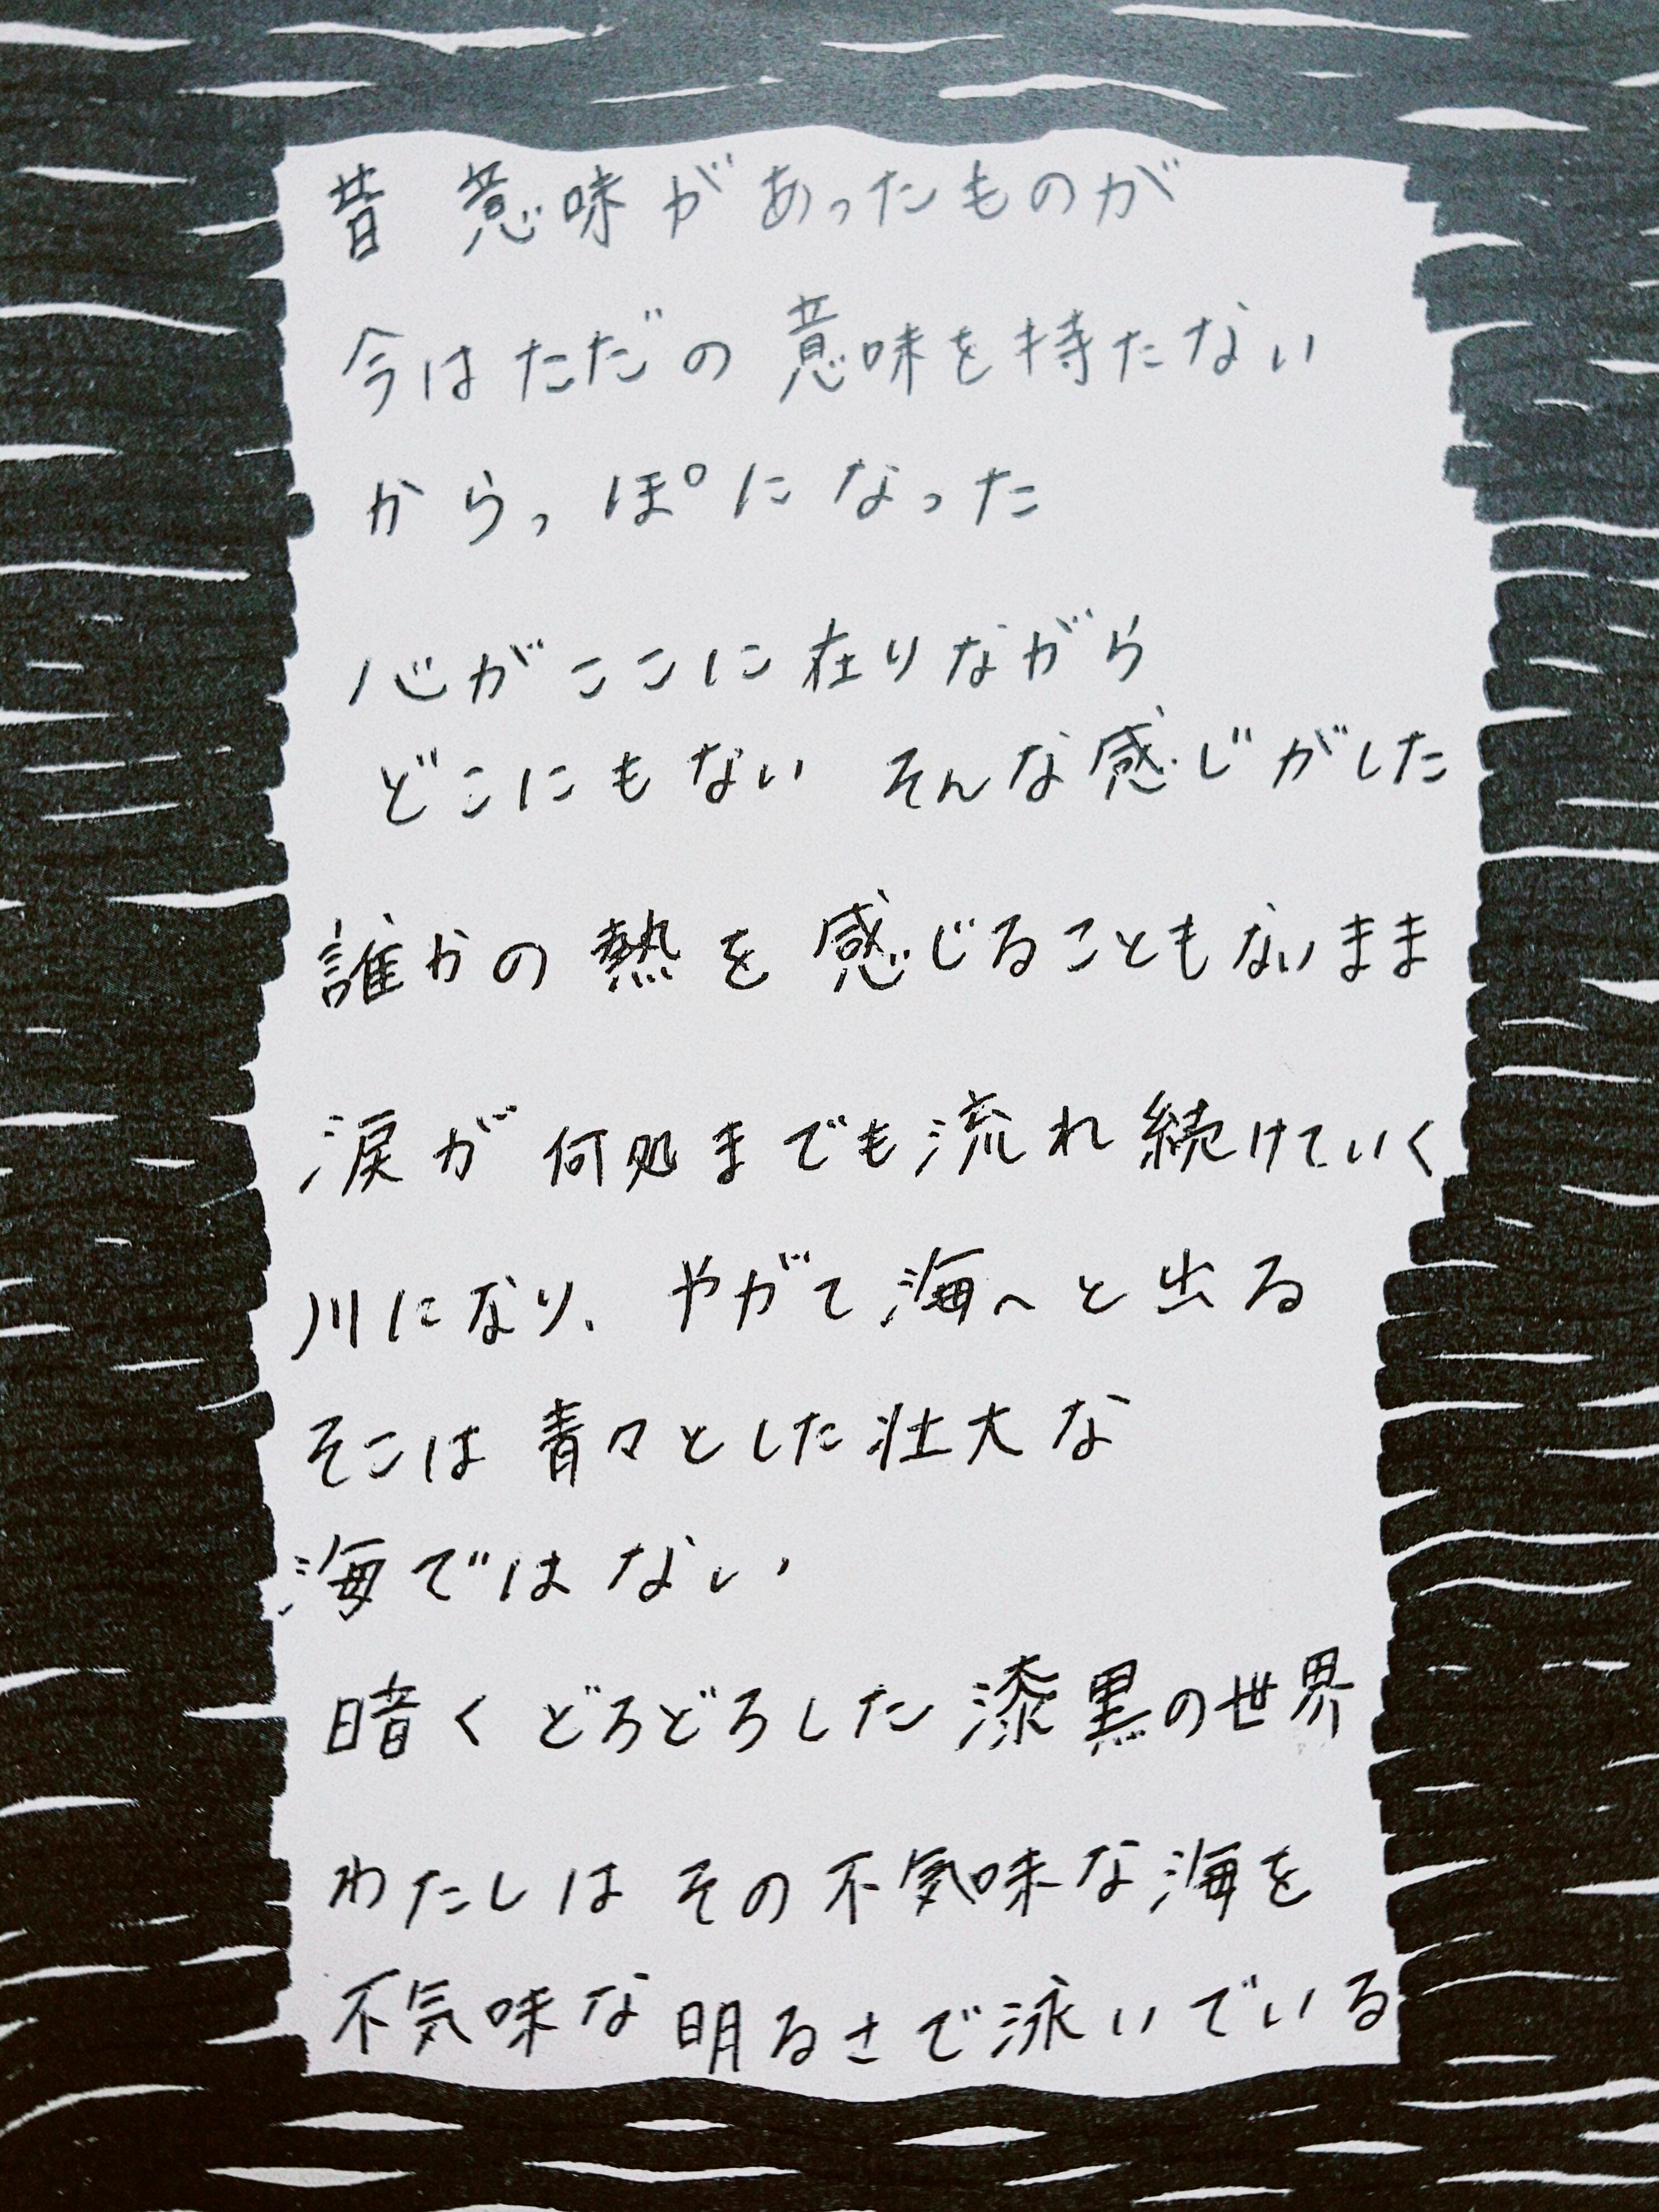 昔 意味があったものが
今はただの意味を持たない
からっぽになった
心がここに在りながら
どこにもない そんな感じがした
誰かの熱を感じることもないまま
涙が何処までも流れ続けていく
川になり、やがて海へと出る
そこは青々とした壮大な
海ではない
暗くどろどろした漆黒の世界
わたしはその不気味な海を
不気味な明るさで泳いでいる